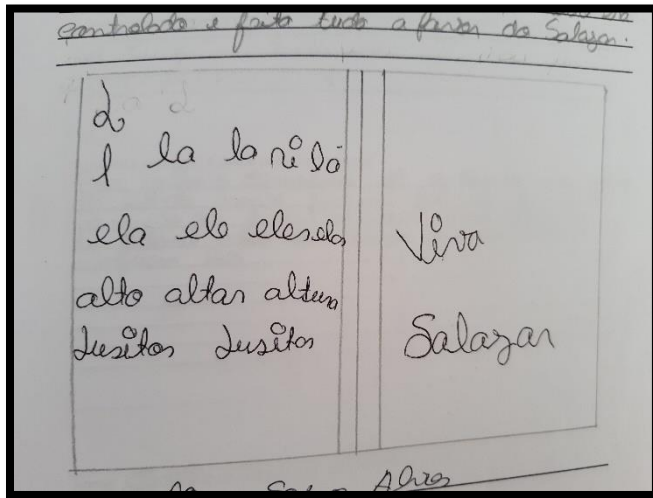 controlado e feito tudo a favor do Salazar.
L
l la la ri lá
ela elo eles elos
alto altar altura
Lusitos Lusitos
Viva
Salazar
Alves